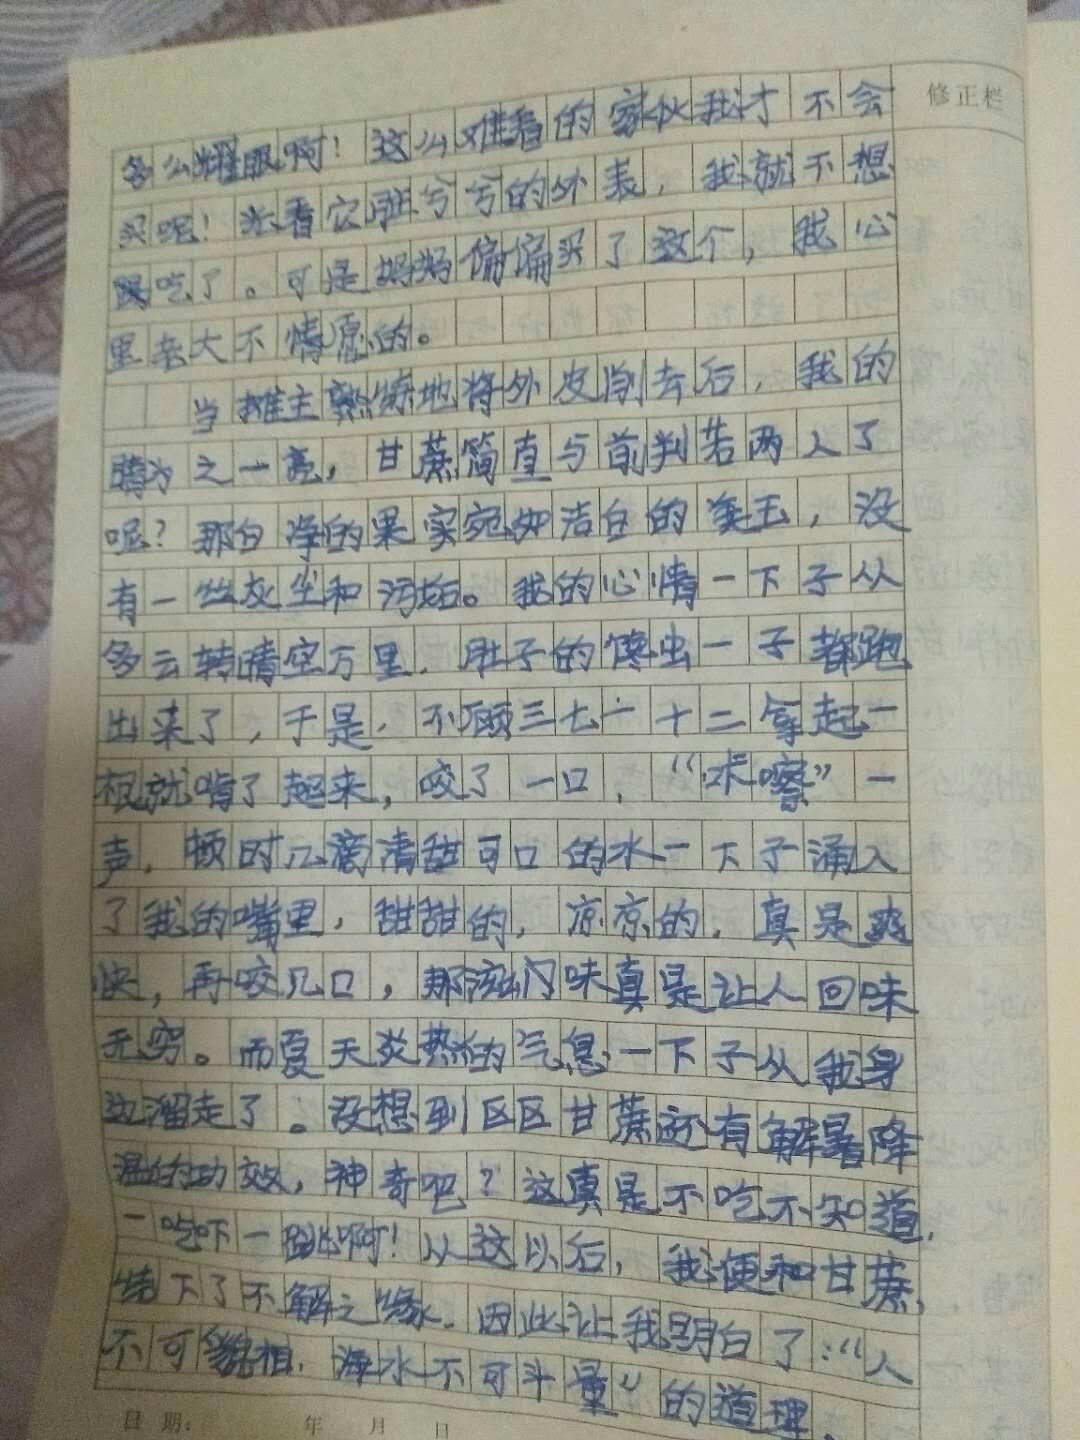 修正栏
多么耀眼啊！这么难看的家伙我才不会
买呢！光看它脏兮兮的外表，我就不想
吃了。可是妈妈偏偏买了这个，我心
里老大不情愿的。
当摊主熟练地将外皮削去后，我的
睛为之一亮，甘蔗简直与前判若两人了
呢？那白净的果实宛如洁白的美玉，没
有一丝灰尘和污垢。我的心情一下子从
多云转晴空万里．肚子的馋虫一子都跑
出来了，于是．不顾三七一十二拿起一
根就啃了起来，咬了一口，“咔嚓”一
声．顿时几滴清甜可口的水一下子涌入
了我的嘴里，甜甜的，凉凉的．真是爽
快，再咬几口，那滋味真是让人回味
无穷。而夏天炎热的气息一下子从我身
边溜走了。没想到区区甘蔗还有解暑降
温的功效，神奇吧？这真是不吃不知道，
一吃吓一跳啊！从这以后，我便和甘蔗，
结下了不解之缘．因此让我明白了：“人
不可貌相．海水不可斗量”的道理．
日期：　年　月　日